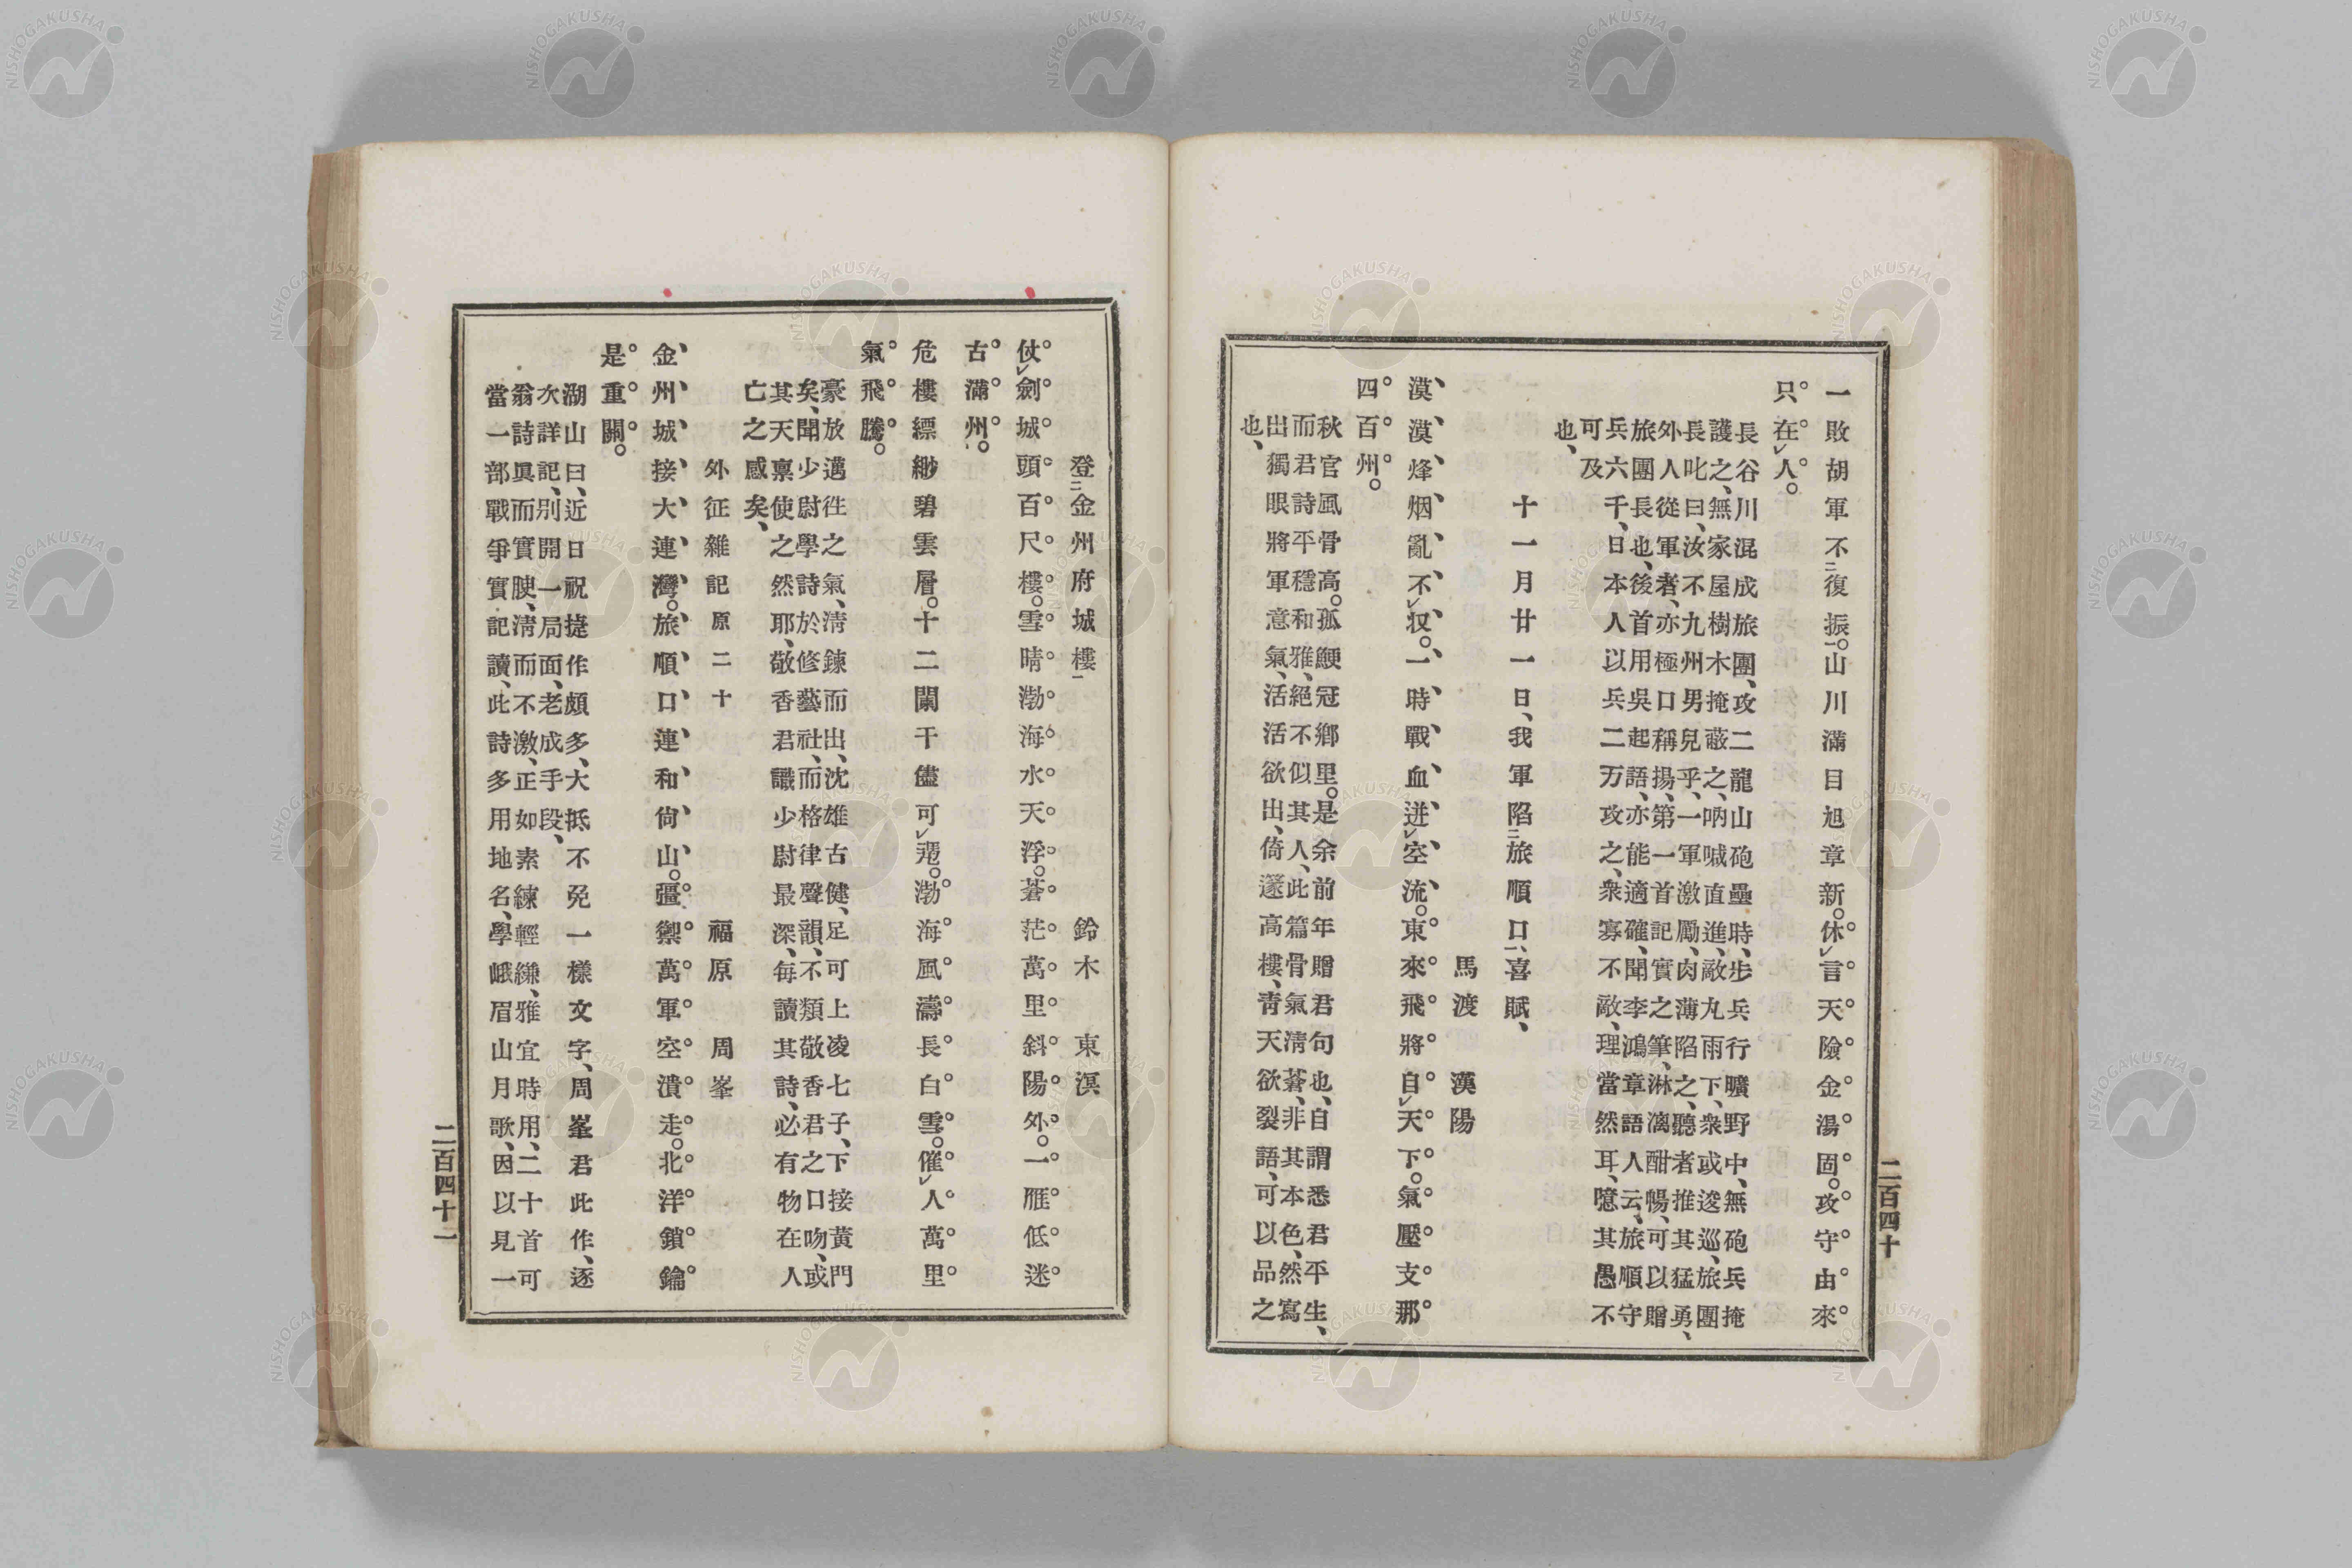 一敗胡軍不復振。山川滿目旭章新。休言天險金湯固。攻守由來
只在人。
長谷川混成旅團、攻二龍山砲壘時、步兵行曠野中、無砲兵掩
護之、無家屋樹木掩蔽之、吶喊直進、敵丸雨下、衆或逡巡、旅團
長叱曰、汝不九州男兒乎、一軍激勵、肉薄陷之、聽者推其猛勇、
外人從軍者、亦極口稱揚、第一首記實之筆、淋漓酣暢、可以贈
旅團長也、後首用吳起語、亦能適確、聞李鴻章語人云、旅順守
兵六千、日本人以兵二万攻之、衆寡不敵、理當然耳、噫其愚不
可及
也、
十一月廿一日、我軍陷二旅順口一、喜賦、
馬渡 漢陽
漠漠烽烟亂不収。一時戰血迸空流。東來飛將自天下。氣壓支那
四百州。
秋官風骨高。孤鯁冠鄉里。是余前年贈君句也、自謂悉君平生、
而君詩平穩和雅、絕不似其人、此篇骨氣淸蒼、非其本色、然寫
出獨眼將軍意氣、活活欲出、倚篴高樓、靑天欲裂語、可以品之
也、
二百四十
登二金州府城樓一 鈴木 東溟
仗劍城頭百尺樓。雪晴渤海水天浮。蒼茫萬里斜陽外。一雁低迷
古滿州。
危樓縹緲碧雲層。十二闌干儘可凭。渤海風濤長白雪。催人萬里
氣飛騰。
豪放邁往之氣、淸鍊而出、沈雄古健、足可上凌七子、下接黃門
矣、聞少尉學詩於修藝社、而格律聲韻、不類敬香君之口吻、或
其天稟使之然耶、敬香君識少尉最深、每讀其詩、必有物在人
亡之感矣、
外征雜記原二十 福原 周峯
金州城接大連灣。旅順口連和尙山。疆禦萬軍空潰走。北洋鎖鑰
是重關。
湖山曰、近日祝捷作頗多、大抵不免一樣文字、周峯君此作、逐
次詳記、別開一局面、老成手段、
翁詩眞而實腴、淸而不激、正如素練輕縑、雅宜時用、二十首可
當一部戰爭實記讀、此詩多用地名、學峨眉山月歌、因以見一
二百四十一
NISHOGAKUSHA